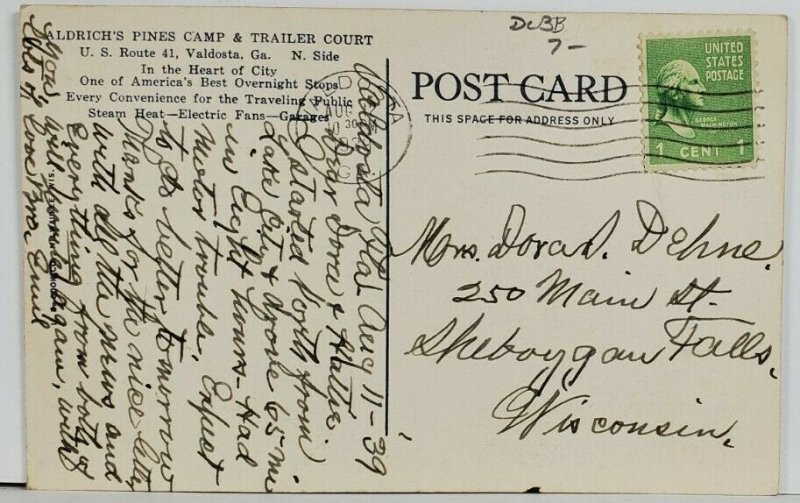 ALDRICH'S PINES CAMP & TRAILER COURT
U. S. Route 41, Valdosta, Ga. N. Side
In the Heart of City
One of America's Best Overnight Stops
Every Convenience for the Traveling Public
Steam Heat—Electric Fans—Garages
DcBB
7-
POST CARD
THIS SPACE FOR ADDRESS ONLY
UNITED
STATES
POSTAGE
GEORGE
WASHINGTON
1 CENT 1
AUG
Valdosta Ga. Aug 11-39
Dear Dora & Hattie
I started North from
Lake City & gone 65 mi
in Eight hours - Had
Motor trouble, Expect
to do better tomorrow
Thanks for the nice letter
with all the news and
Everything from both of
you, will again, with
lots of love Bro. Emil
Mrs. Dora D. Dehne.
250 Main St.
Sheboygan Falls,
Wisconsin,